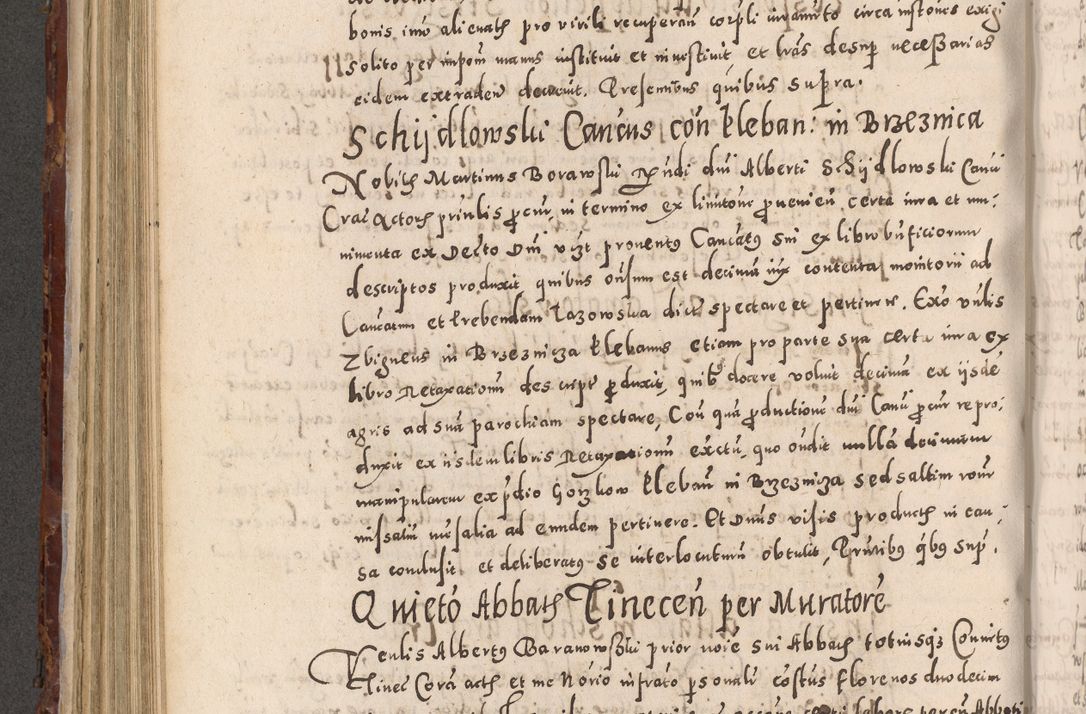 bonis imo alienatis pro virili recuperan corpli iuramto circa instones exigi
solito per impom manus instituit et investivit et lras desup necessarias
eidem extraden decrevit. Presentibus quibus supra.
Schijdlowski Cancus con kleban: in Brzeznica
Nobilis Martinus Borawski dni Alberti Schijdlowski Canci
Crac Actoris prinlis pcur, in termino ex limitone pvenien, certa iura et mu-
nimenta ex Decto Dni vizt proventq Cancatq sui ex libro bnficiorum
descriptos produxit quibus onsum est decima contenta monitorii ad
Cancatum et Prebendam Jazowska dict spectare et pertinere. Exo vnlis
Zbigneus in Brzezniza klebanus etiam pro parte sua certa iura ex
libro Retaxationum descript pduxit, quib docere voluit decima ex iisde
agris ad sua parochiam spectare, Con qua pductione dni Canci pcur repro-
duxit ex iisdem libris Retaxationum exctu, quo ondit nulla decimam
manipularem ex pdio Gorzkow kleban in Brzezniza sed saltim
missalia ad eundem pertinere. Et Dnus visis productis in cau-
sa conclusit et deliberatq se interlocuturu obtulit, Pntibq qbq sup.
Quieto Abbatis Tinecen per Muratore
Venlis Albertq Baranowski prior noie sui Abbatis totiusqz Conventq
Tinec Cora actis et me Norio infrato psonali costus florenos duodecim